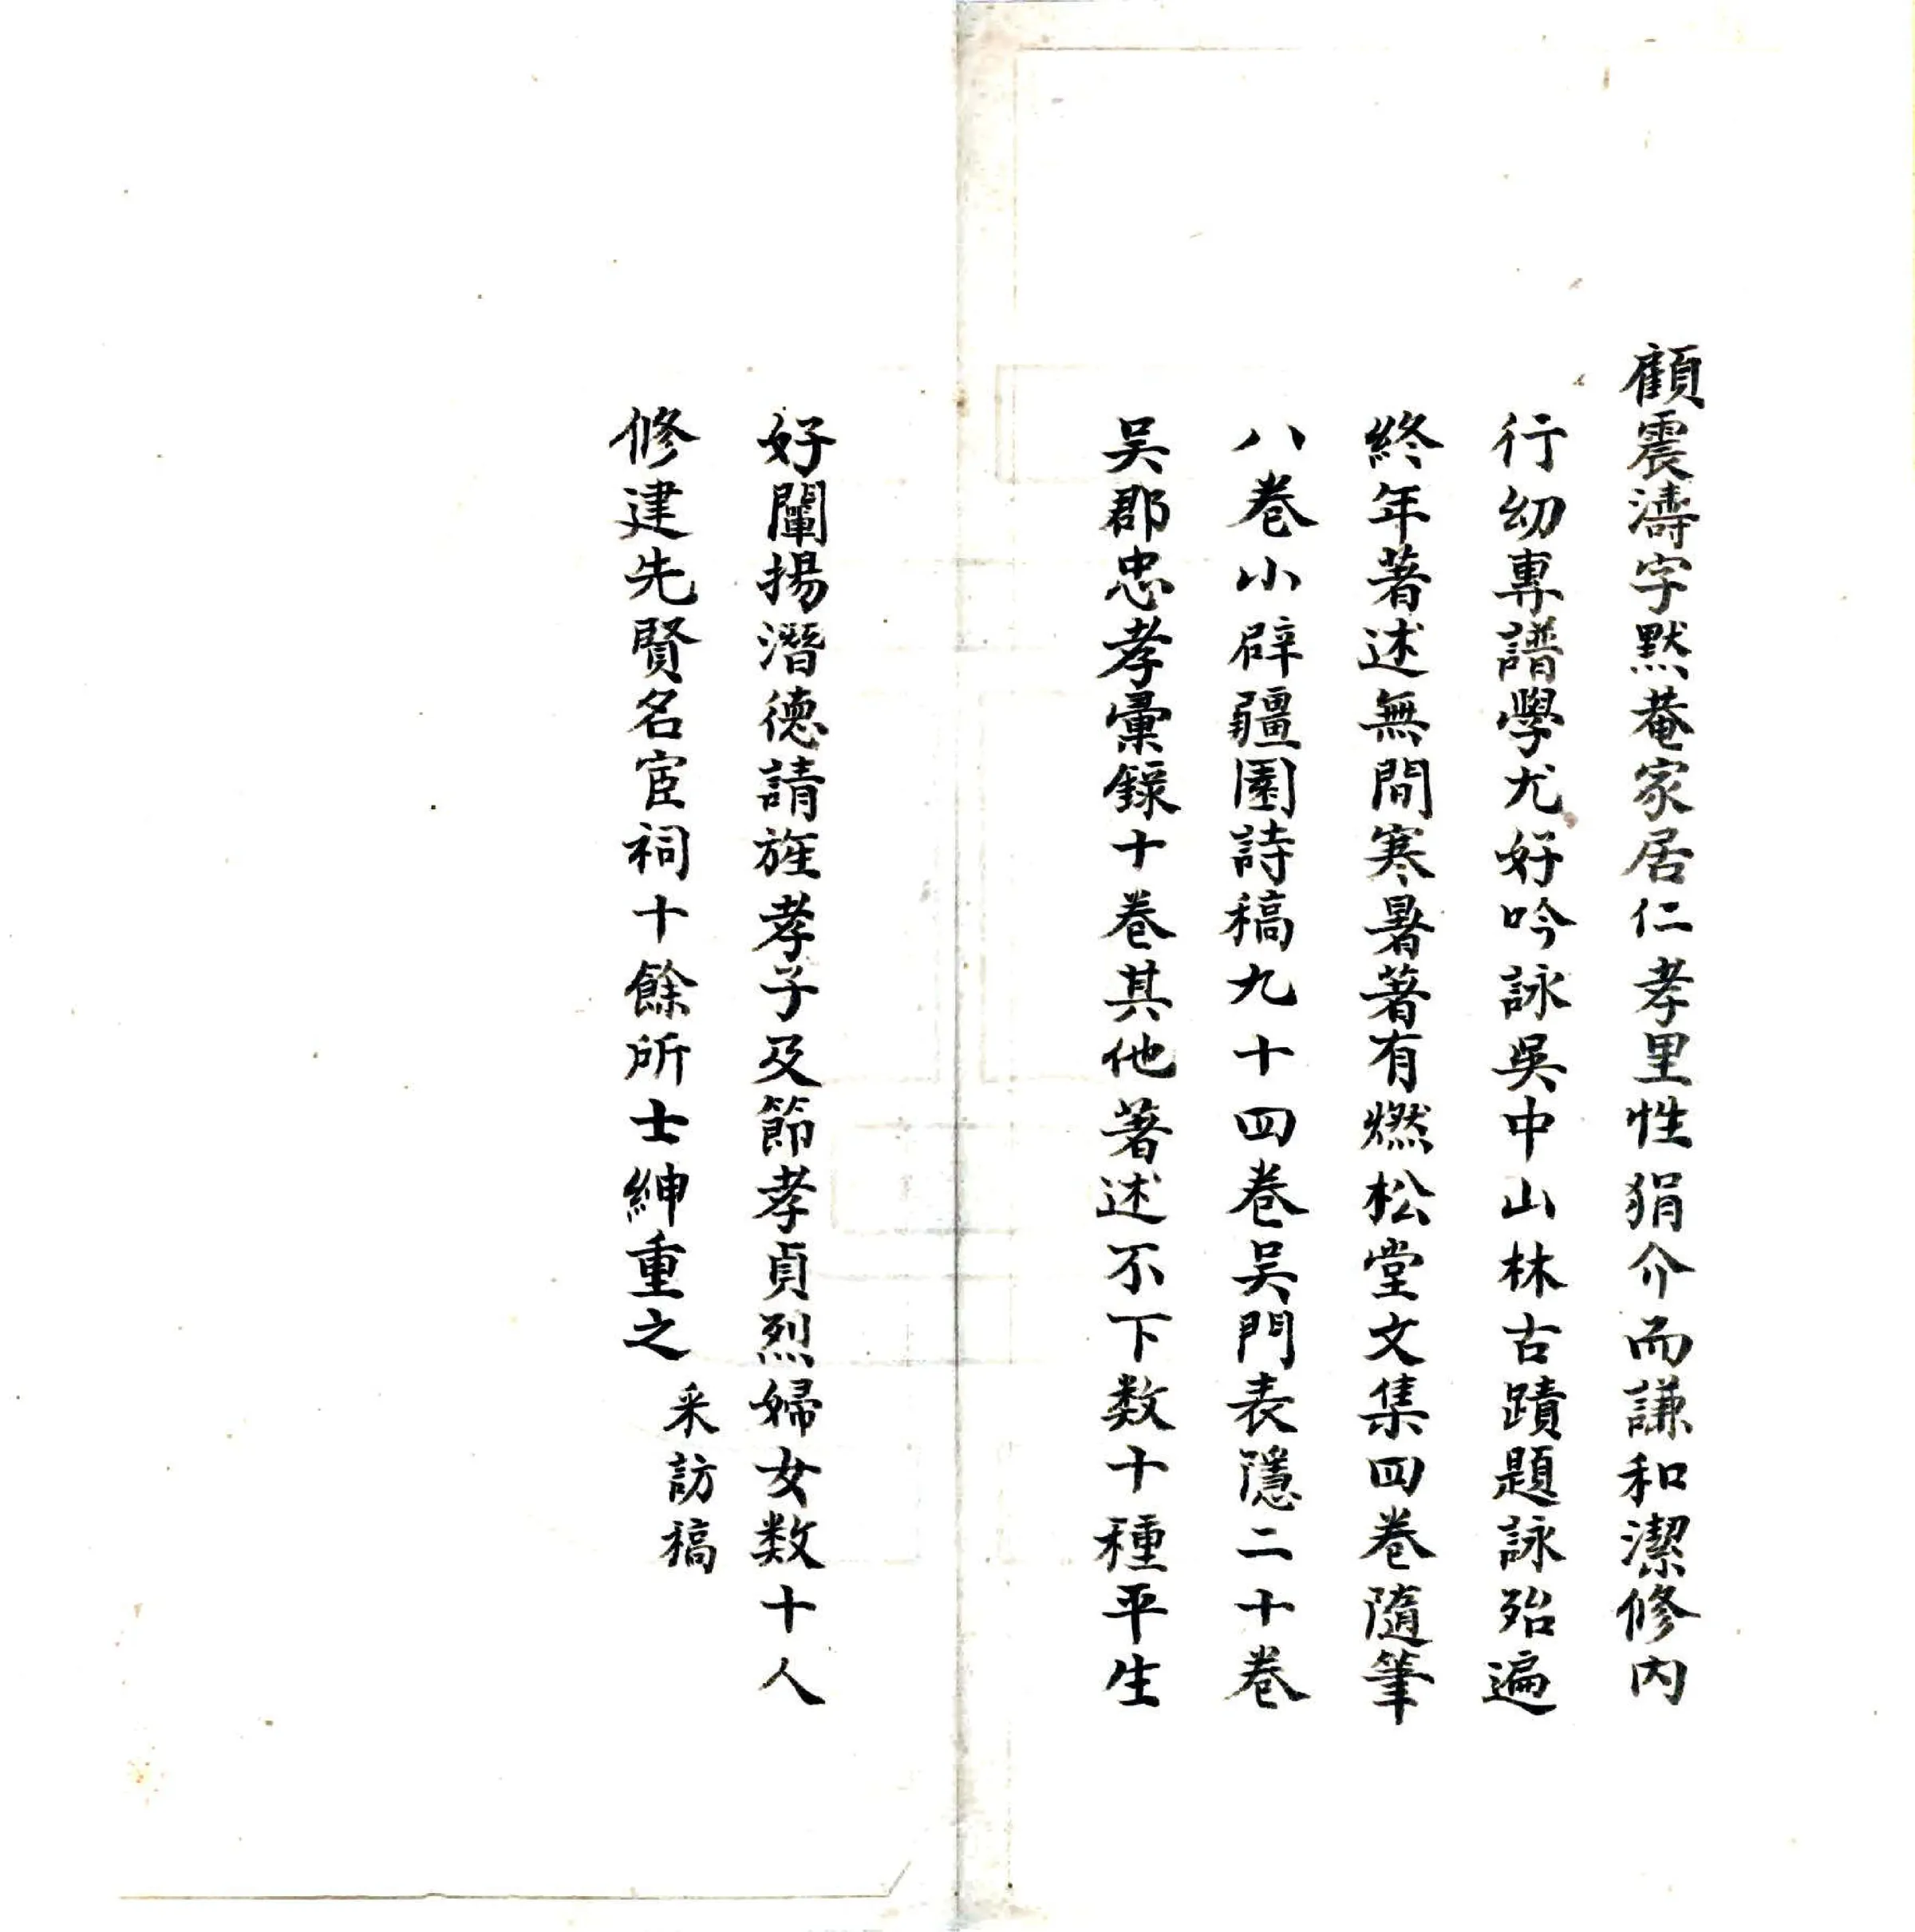 顧震濤字默菴家居仁孝里性狷介而謙和潔修内
行幼專譜學尤好吟詠吳中山林古蹟題詠殆遍
終年著述無間寒暑著有燃松堂文集四卷隨筆
八卷小辟疆園詩稿九十四卷吴門表隱二十卷
吴郡忠孝彚錄十卷其他著述不下数十種平生
好闡揚潛德請旌孝子及節孝貞烈婦女数十人
修建先賢名宦祠十餘所士紳重之 采訪稿